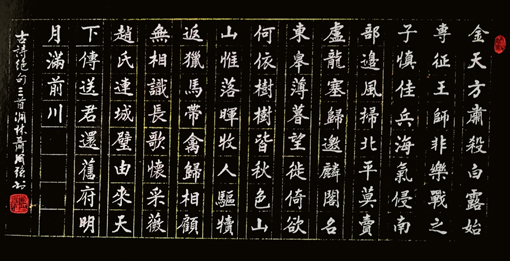 金天方肅殺白露始
專征王師非樂戰之
子慎佳兵海氣侵南
部邊風掃北平莫賣
盧龍塞歸邀麟閣名
東皋薄暮望徙倚欲
何依樹樹皆秋色山
山惟落暉牧人驅犢
返獵馬帶禽歸相顧
無相識長歌懷采薇
趙氏連城璧由來天
下傳送君還舊府明
月滿前川
古詩絕句三首